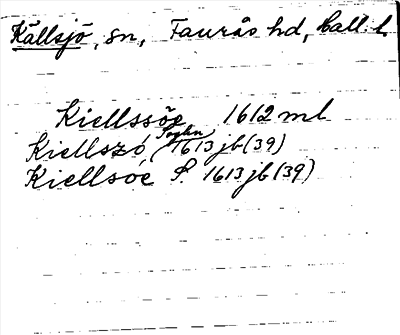 Källsjö, sn, Faurås hd, Hall. l.
Kiellssöe 1612 ml
Kiellszó, Soghn 1613 jb (39)
Kiellsoe S. 1613 jb (39)